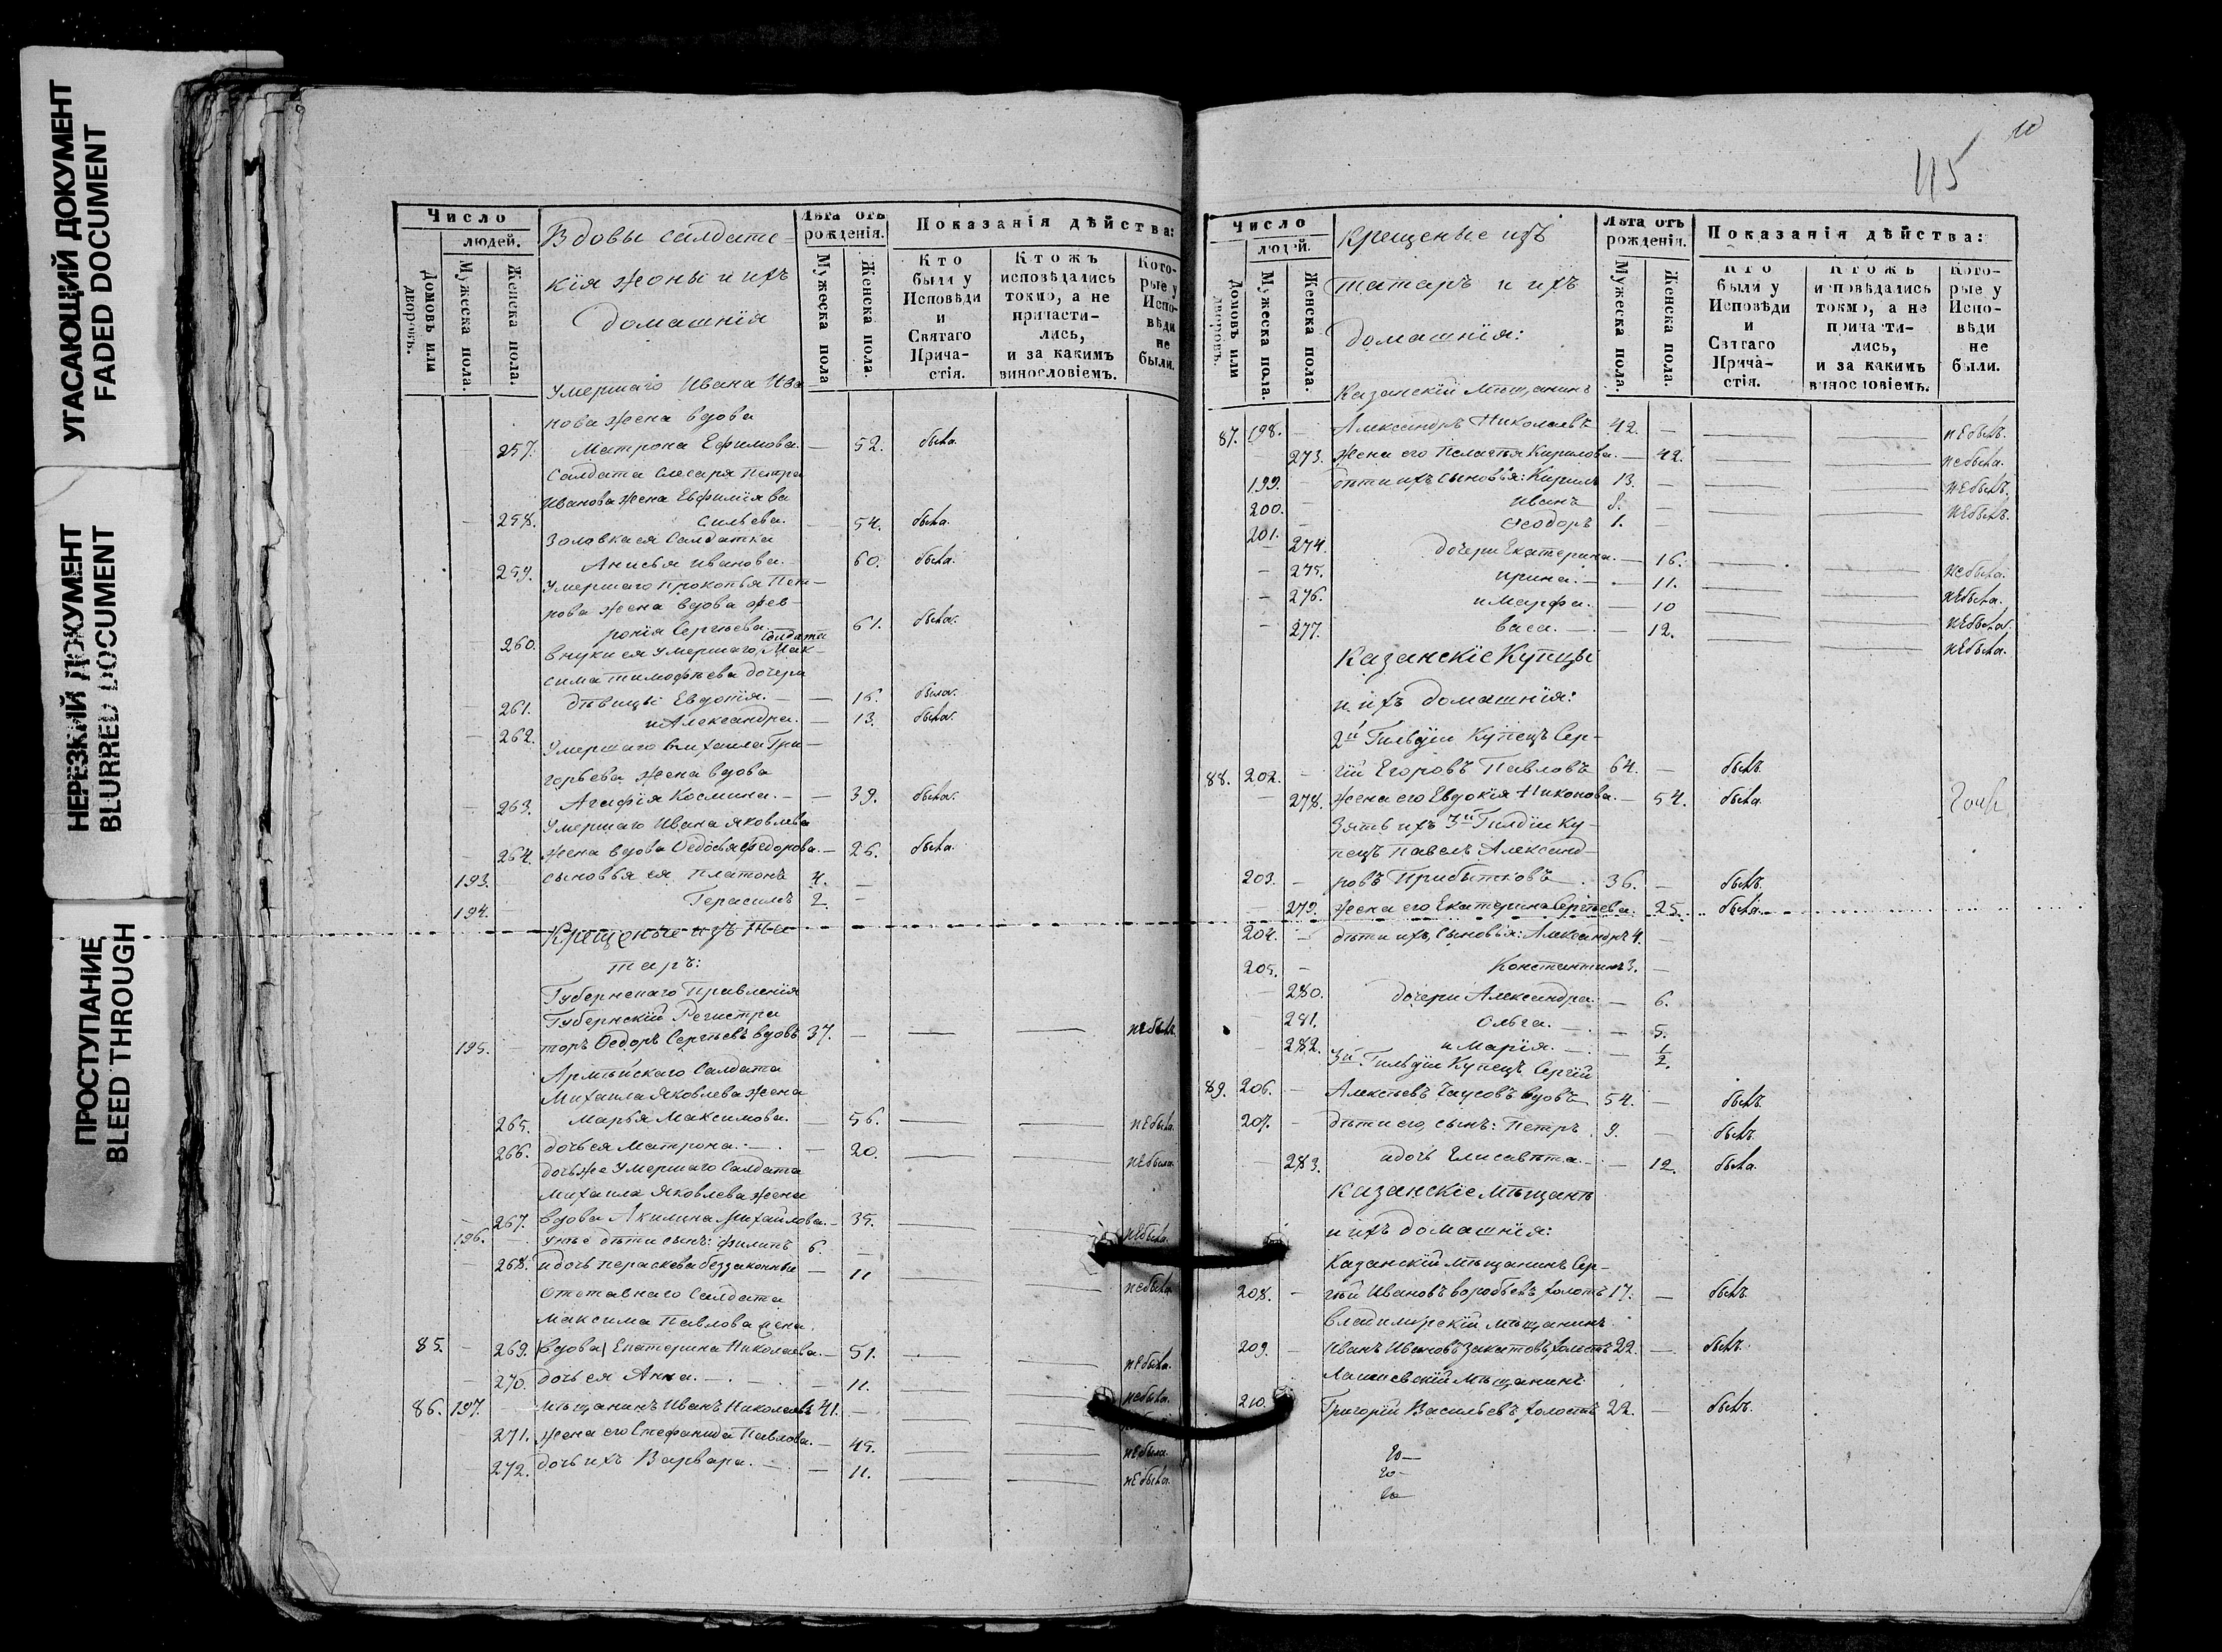 УГАСАЮЩИЙ ДОКУМЕНТ
FADED DOCUMENT
НЕРЕЗКИЙ ДОКУМЕНТ
BLURRED DOCUMENT
ПРОСТУПАНИЕ
BLEED THROUGH
Число
людей.
Домовъ или дворовъ.
Мужеска пола.
Женска пола.
Вдовы салдатс-
кія жоны и ихъ
домашнія
Лѣта отъ рожденія.
Мужеска пола
Женска пола.
Показанія дѣйства:
Кто были у Исповѣди и Святаго Причастія.
Ктожъ исповѣдались токмо, а не причастились, и за какимъ винословіемъ.
Которые у Исповѣди не были.
Умершаго Ивана Ива
нова жена вдова
257. Матрона Ефимова. — 52. была.
Салдата Слесаря Петра
Иванова жена Евфимія Ва
258. сильева. — 54. была.
Золовка ея Салдатка
259. Анисья Иванова. — 60. была.
Умершаго Прокопья Пет-
рова жена вдова Фев-
260. ронія Сергѣева. — 61. была.
Внуки ея умершаго Салдата Мак-
сима Тимофѣева дочери
261. дѣвицы Евдокія. — 16. была.
262. и Александра. — 13. была.
Умершаго Михаила Гри-
горьева жена вдова
263. Агафія Космина. — 39. была.
Умершаго Ивана Яковлева
264. жена вдова Ѳедосья Федорова. — 26. была.
193. сыновья ея Платонъ 4. —
194. Герасимъ 2 —
Крещеные изъ Та
таръ:
Губернскаго Правленія
Губернскій Регистра
195. торъ Ѳедоръ Сергѣевъ вдовъ 37. — небылъ.
Армѣйскаго Салдата
Михаила Яковлева жена
265. Марья Максимова. — 56. небыла.
266. дочь ея Матрона. — 20. небыла.
дочь же умершаго Салдата
Михаила Яковлева жена
267. вдова Акилина Михайлова. — 35. небыла.
196. у нее дѣти сынъ: Филипъ 6. —
268. и дочь Параскева беззаконные — 11 небыла.
Отставнаго Салдата
Максима Павлова жена
85. 269. (вдова) Екатерина Николаева. — 51. небыла.
270. дочь ея Анна. — 11. небыла.
86. 197. Мѣщанинъ Иванъ Николаевъ 41. —
271. жена его Стефанида Павлова. — 45. небыла.
272. дочь ихъ Варвара. — 11. небыла.
10
45
Число
людей.
Домовъ или дворовъ.
Мужеска пола.
Женска пола.
Крещеные изъ
татаръ и ихъ
домашнія:
Лѣта отъ рожденія.
Мужеска пола.
Женска пола.
Показанія дѣйства:
Кто были у Исповѣди и Святаго Причастія.
Ктожъ исповѣдались токмо, а не причастились, и за какимъ винословіемъ.
Которые у Исповѣди не были.
Казанскій Мѣщанинъ
87. 198. Александръ Николаевъ 42. — небылъ.
273. жена его Пелагья Кирилова. — 42. небыла.
199. дѣти ихъ сыновья: Кирилъ 13. — небылъ.
200. Иванъ 8. — небылъ.
201. Ѳеодоръ 1. —
274. дочери Екатерина. — 16. небыла.
275. Ирина. — 11. небыла.
276. и Марфа. — 10 небыла.
277. Васа. — 12. небыла.
Казанскіе Купцы
и ихъ домашнія:
2й Гильдіи Купецъ Сер-
88. 202. гій Егоровъ Павловъ 64. — былъ.
278. жена его Евдокія Никонова. — 54. была.
Зять ихъ 3й Гилдіи Ку-
пецъ Павелъ Александ-
203. ровъ Прибытковъ. 36. — былъ.
279. жена его Екатерина Сергѣева. 25. была.
204. дѣти ихъ, сыновья: Александръ 4. —
205. Константинъ 3. —
280. дочери Александра. — 6.
281. Ольга. — 5.
282. и Марія. — 1/2.
3й Гильдіи Купецъ Сергій
89. 206. Алексѣевъ Чаусовъ вдовъ 54. — былъ.
207. дѣти его, сынъ: Петръ 9. — былъ.
283. и дочь Елисавѣта. — 12. была.
Казанскіе Мѣщанѣ
и ихъ домашнія:
Казанскій мѣщанинъ Сер-
208. гѣй Ивановъ Воробьевъ холостъ 17. — былъ.
Владимирскій мѣщанинъ
209. Иванъ Ивановъ Закатовъ холостъ 22. — былъ.
Лаишевскій Мѣщанинъ
210. Григорій Васильевъ холостъ 22. — былъ.